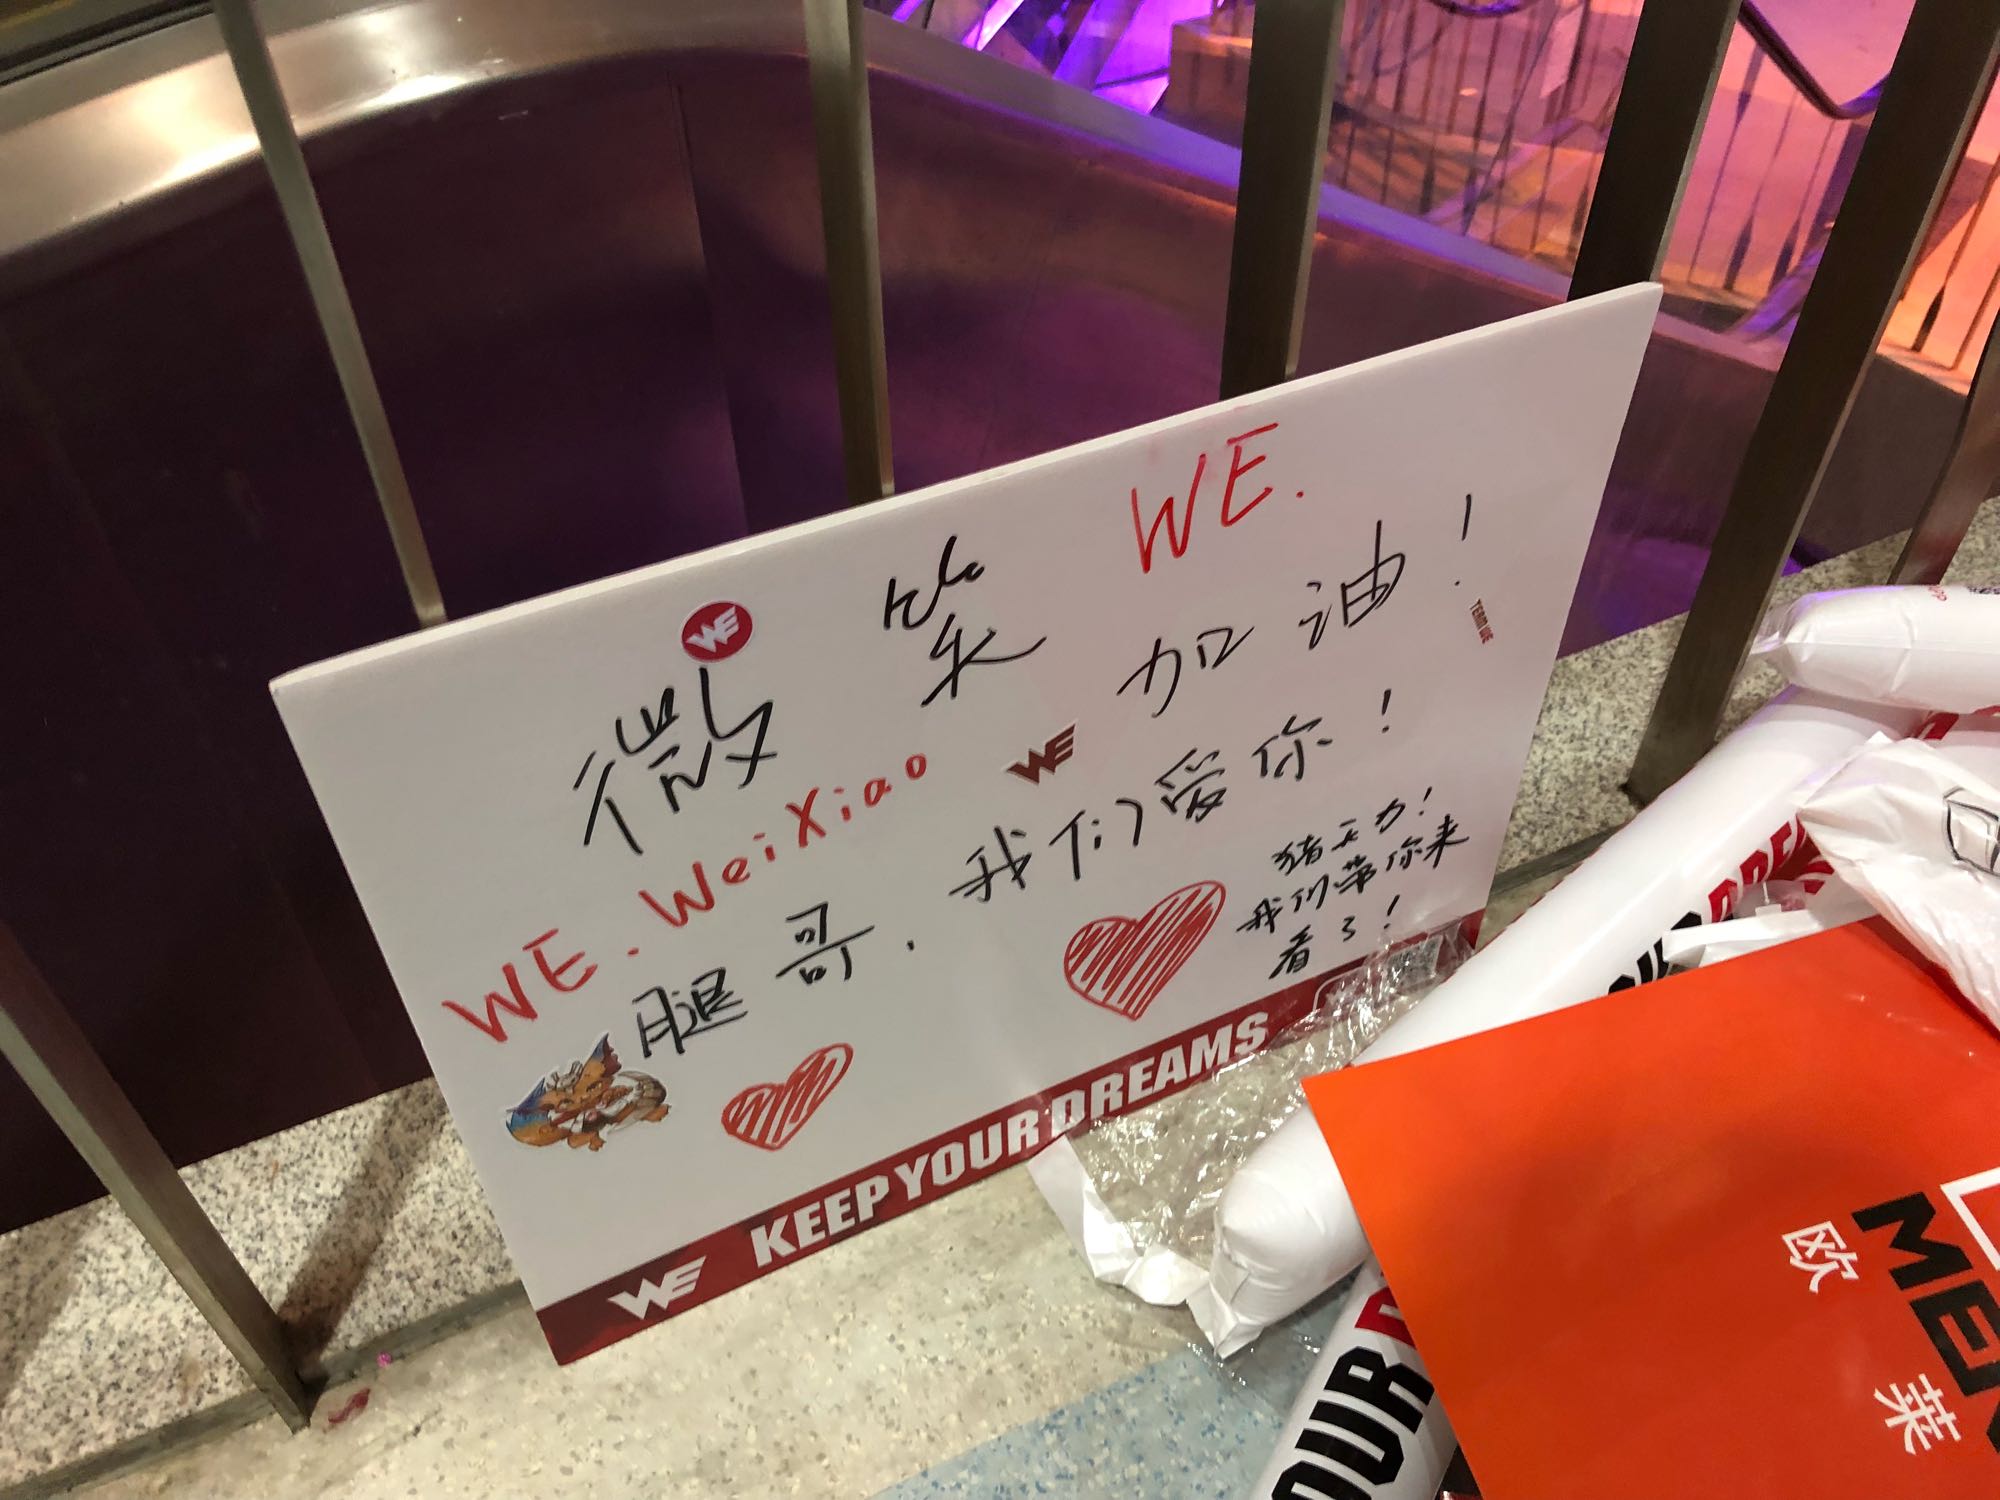 WE.
微笑 加油!
WE
TEAM WE
WE.WeiXiao
WE
腿哥.我们爱你!
猪天力!
我们带你来
看了!
WE KEEP YOUR DREAMS
OUR D
欧莱